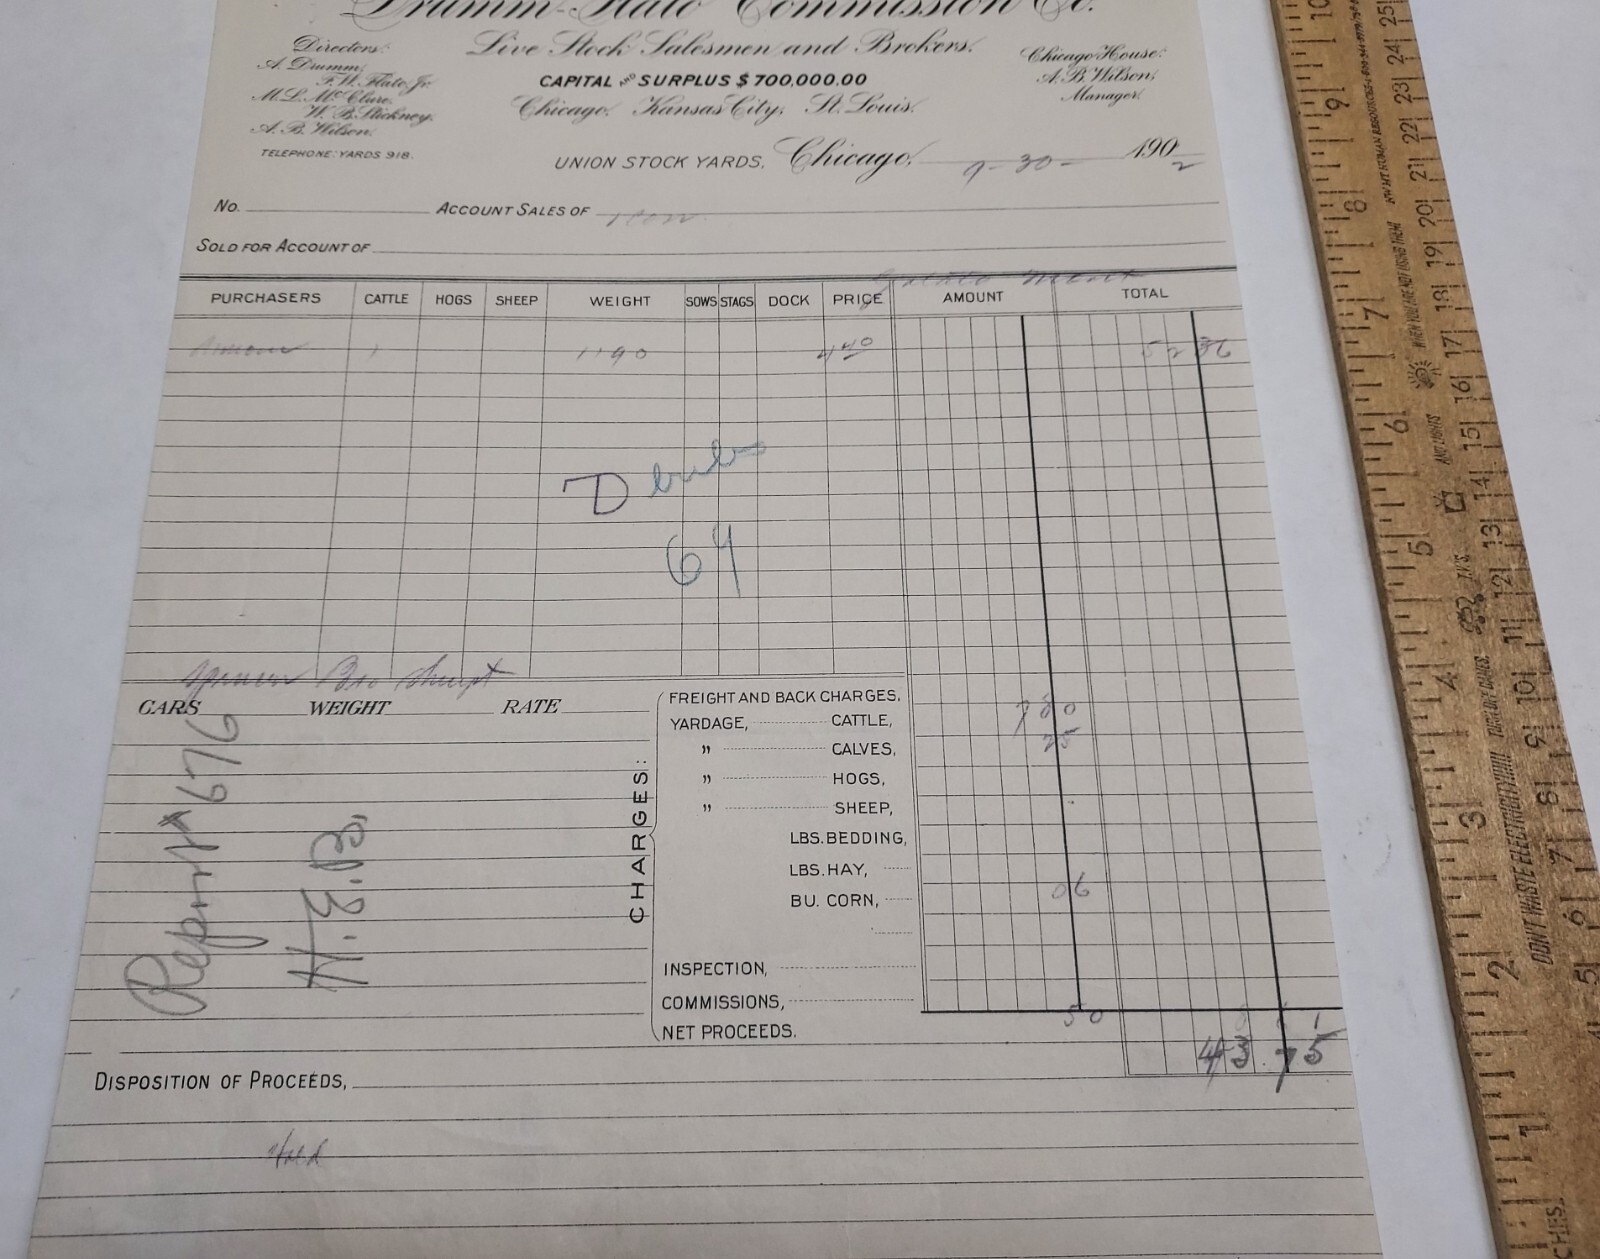 Drumm-Flato Commission Co.
Live Stock Salesmen and Brokers.
CAPITAL AND SURPLUS $700,000.00
Chicago. Kansas City, St. Louis.
Directors:
A. Drumm,
F.W. Flato Jr.
M.L. McClure.
W. B. Stickney.
A. B. Wilson.
TELEPHONE: YARDS 918.
Chicago House:
A. B. Wilson,
Manager.
UNION STOCK YARDS, Chicago, 9-30- 1902
No. ACCOUNT SALES OF
SOLD FOR ACCOUNT OF
PURCHASERS CATTLE HOGS SHEEP WEIGHT SOWS STAGS DOCK PRICE AMOUNT TOTAL
Armour 1 1190 4 40 52 36
D
64
Spencer Bro
CARS WEIGHT RATE
Report 676
H.E.B.
CHARGES:
FREIGHT AND BACK CHARGES. 7 80
YARDAGE, CATTLE, 25
" CALVES,
" HOGS,
" SHEEP,
LBS. BEDDING,
LBS. HAY,
BU. CORN, 06
INSPECTION,
COMMISSIONS, 50 8 61
NET PROCEEDS. 43 75
DISPOSITION OF PROCEEDS,
Held